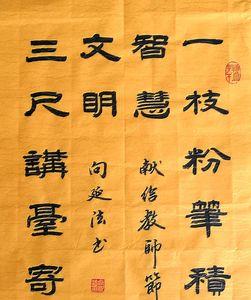 一枝粉筆積
智慧
三尺講臺寄
文明
献给教師節
延法书